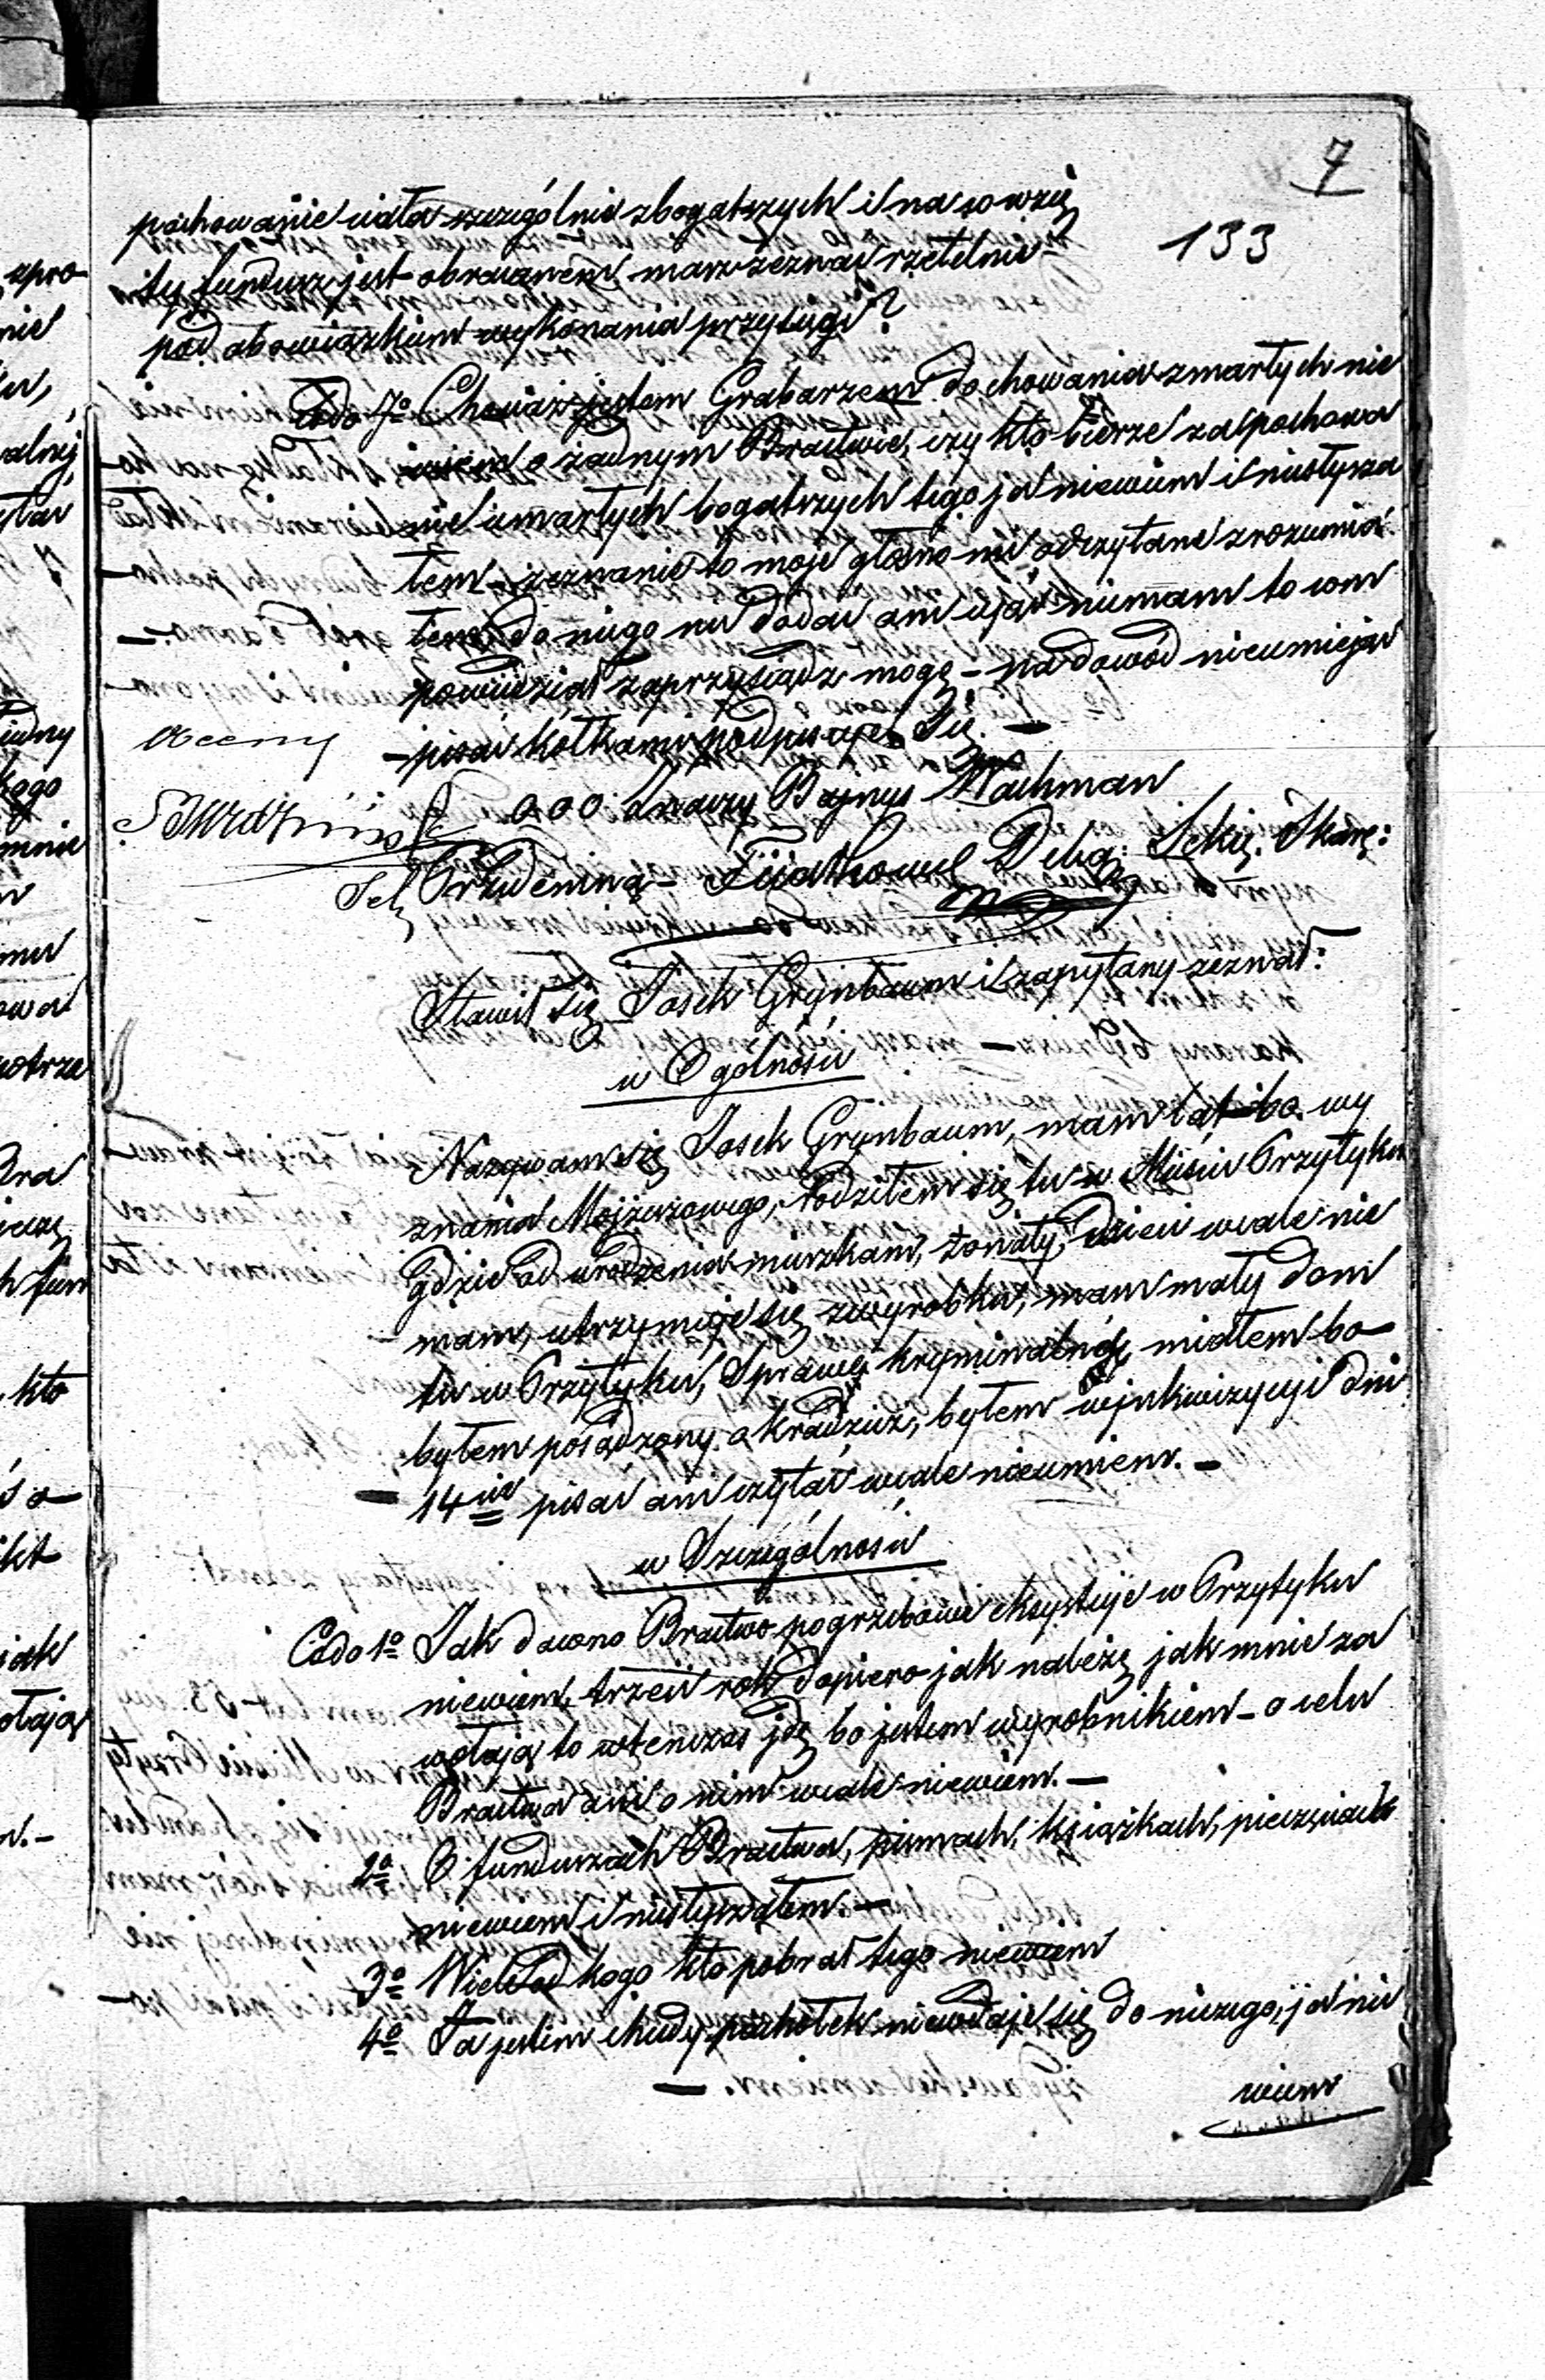 7
133
pochowanie ciała szczególnie z bogatszych i na co wzię
ty fundusz jest obracanem, masz zeznać rzetelnie
pod obowiązkiem wykonania przysięgi?
Co do 7o Chociaż jestem Grabarzem do chowania zmarłych nie
wiem o żadnym Bractwie, czy kto bierze za pochowa
nie umarłych bogatszych tego ja niewiem i niesłysza
łem – zeznanie to moje głośno mi odczytane zrozumia
łem do niego nic dodać ani ująć niemam to com
powiedział zaprzysiądz mogę – na dowód nieumiejąc
pisać kółkami podpisuje Się. –
obecny
ooo znaczy Bajnys Nachman
Fijałkowski Deleg: Sekc. Skarb:
Stawił się Josek Grynbaum i zapytany zeznał:
w Ogolności
Nazywam się Josek Grynbaum, mam lat 60. wy
znania Mojżeszowego, rodziłem się tu w Mieście Przytyku
gdzie od urodzenia mieszkam, żonaty, dzieci wcale nie
mam, utrzymuje się z wyrobku, mam mały dom
tu w Przytyku, Sprawę kryminalną miałem bo
byłem posądzony o kradzież, byłem w jnkwizycyi dni
14cie pisać ani czytać wcale nieumiem. –
w Szczególności
Co do 1o Jak dawno Bractwo pogrzebowe eksystuje w Przytyku
niewiem, trzeci rok dopiero jak należę jak mnie za
wołają to wtenczas jdę bo jestem wyrobnikiem – o celu
Bractwa ani o nim wcale niewiem. –
2o O funduszach Bractwa, pismach, książkach, pieczęciach
niewiem i niesłyszałem –
3o Wiele od kogo kto pobrał tego niewiem
4o Ja jestem chudy pachołek niewdaje się do niczego, ja nie
wiem